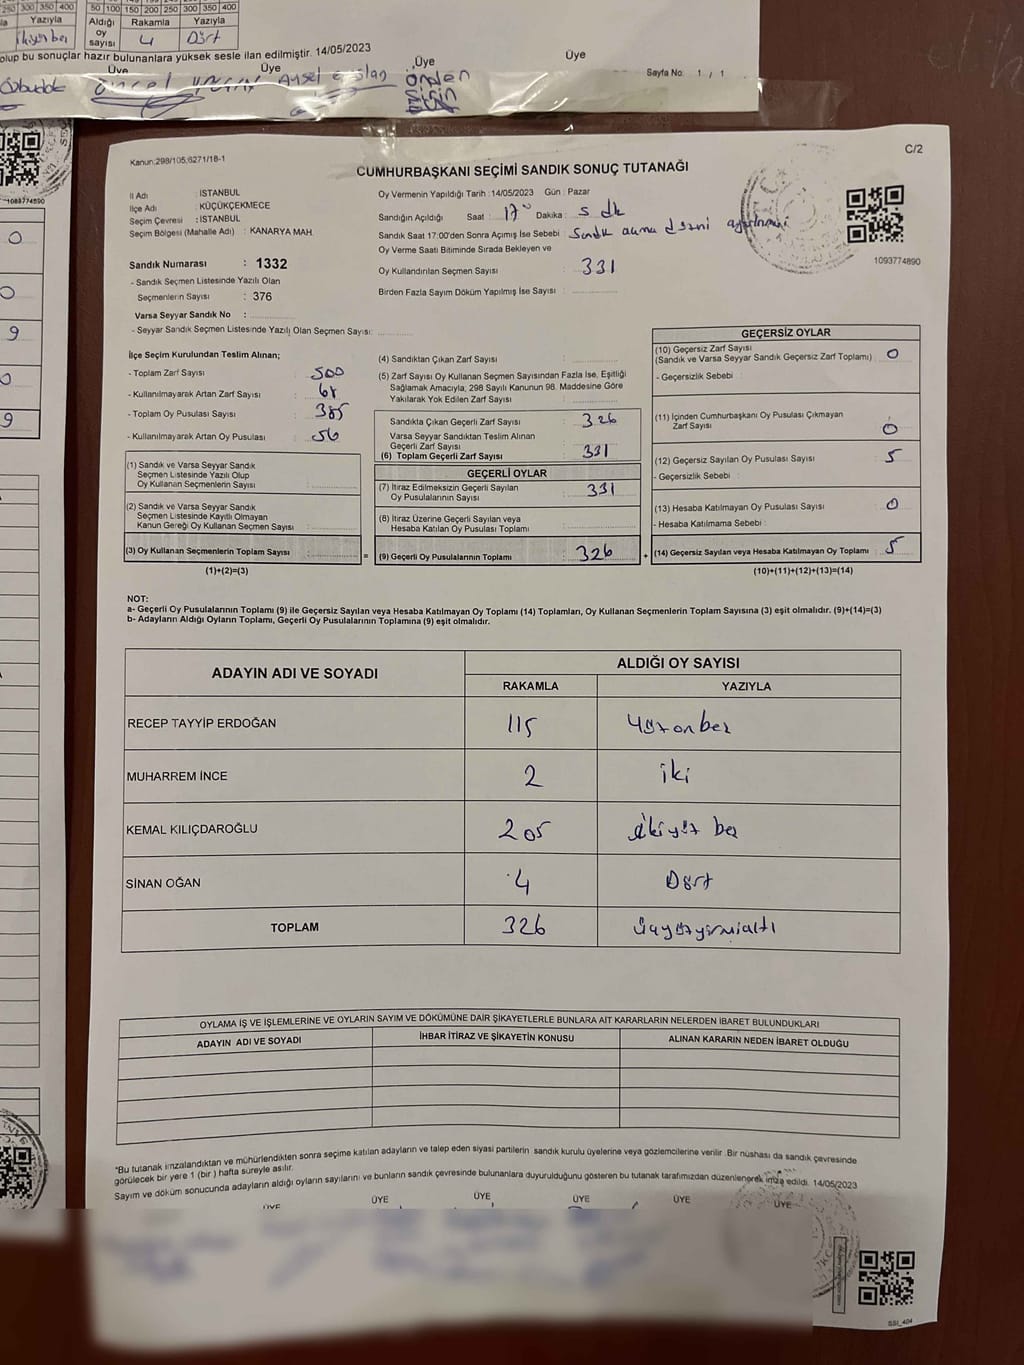 250 300 350 400
50 100 150 200 250 300 350 400
Yazıyla
Aldığı oy sayısı
Rakamla
Yazıyla
4
Dört
olup bu sonuçlar hazır bulunanlara yüksek sesle ilan edilmiştir. 14/05/2023
Üye
Üye
Üye
Üye
Sayfa No: 1 / 1
1088774590
0
0
9
0
9
Kanun:298/105;6271/18-1
C/2
CUMHURBAŞKANI SEÇİMİ SANDIK SONUÇ TUTANAĞI
İl Adı : İSTANBUL
İlçe Adı : KÜÇÜKÇEKMECE
Seçim Çevresi : İSTANBUL
Seçim Bölgesi (Mahalle Adı) : KANARYA MAH.
Sandık Numarası : 1332
- Sandık Seçmen Listesinde Yazılı Olan
Seçmenlerin Sayısı : 376
Varsa Seyyar Sandık No :
- Seyyar Sandık Seçmen Listesinde Yazılı Olan Seçmen Sayısı:
Oy Vermenin Yapıldığı Tarih : 14/05/2023 Gün : Pazar
Sandığın Açıldığı Saat : 17 Dakika : 5 dk
Sandık Saat 17:00'den Sonra Açılmış İse Sebebi : Sandık açma
Oy Verme Saati Bitiminde Sırada Bekleyen ve
Oy Kullandırılan Seçmen Sayısı : 331
Birden Fazla Sayım Döküm Yapılmış İse Sayısı :
1093774890
İlçe Seçim Kurulundan Teslim Alınan;
- Toplam Zarf Sayısı : 500
- Kullanılmayarak Artan Zarf Sayısı :
- Toplam Oy Pusulası Sayısı : 385
- Kullanılmayarak Artan Oy Pusulası : 56
(1) Sandık ve Varsa Seyyar Sandık
Seçmen Listesinde Yazılı Olup
Oy Kullanan Seçmenlerin Sayısı :
(2) Sandık ve Varsa Seyyar Sandık
Seçmen Listesinde Kayıtlı Olmayan
Kanun Gereği Oy Kullanan Seçmen Sayısı :
(3) Oy Kullanan Seçmenlerin Toplam Sayısı :
(1)+(2)=(3)
=
(4) Sandıktan Çıkan Zarf Sayısı :
(5) Zarf Sayısı Oy Kullanan Seçmen Sayısından Fazla İse, Eşitliği
Sağlamak Amacıyla; 298 Sayılı Kanunun 98. Maddesine Göre
Yakılarak Yok Edilen Zarf Sayısı :
Sandıkta Çıkan Geçerli Zarf Sayısı : 326
Varsa Seyyar Sandıktan Teslim Alınan
Geçerli Zarf Sayısı :
(6) Toplam Geçerli Zarf Sayısı : 331
GEÇERLİ OYLAR
(7) İtiraz Edilmeksizin Geçerli Sayılan
Oy Pusulalarının Sayısı : 331
(8) İtiraz Üzerine Geçerli Sayılan veya
Hesaba Katılan Oy Pusulası Toplamı :
(9) Geçerli Oy Pusulalarının Toplamı : 326
+
GEÇERSİZ OYLAR
(10) Geçersiz Zarf Sayısı : 0
(Sandık ve Varsa Seyyar Sandık Geçersiz Zarf Toplamı)
- Geçersizlik Sebebi :
(11) İçinden Cumhurbaşkanı Oy Pusulası Çıkmayan
Zarf Sayısı : 0
(12) Geçersiz Sayılan Oy Pusulası Sayısı : 5
- Geçersizlik Sebebi :
(13) Hesaba Katılmayan Oy Pusulası Sayısı : 0
- Hesaba Katılmama Sebebi :
(14) Geçersiz Sayılan veya Hesaba Katılmayan Oy Toplamı : 5
(10)+(11)+(12)+(13)=(14)
NOT:
a- Geçerli Oy Pusulalarının Toplamı (9) ile Geçersiz Sayılan veya Hesaba Katılmayan Oy Toplamı (14) Toplamları, Oy Kullanan Seçmenlerin Toplam Sayısına (3) eşit olmalıdır. (9)+(14)=(3)
b- Adayların Aldığı Oyların Toplamı, Geçerli Oy Pusulalarının Toplamına (9) eşit olmalıdır.
ADAYIN ADI VE SOYADI
ALDIĞI OY SAYISI
RAKAMLA
YAZIYLA
RECEP TAYYİP ERDOĞAN 115 Yüzonbeş
MUHARREM İNCE 2 iki
KEMAL KILIÇDAROĞLU 205 ikiyüz beş
SİNAN OĞAN 4 Dört
TOPLAM 326 üçyüzyirmialtı
OYLAMA İŞ VE İŞLEMLERİNE VE OYLARIN SAYIM VE DÖKÜMÜNE DAİR ŞİKAYETLERLE BUNLARA AİT KARARLARIN NELERDEN İBARET BULUNDUKLARI
ADAYIN ADI VE SOYADI
İHBAR İTİRAZ VE ŞİKAYETİN KONUSU
ALINAN KARARIN NEDEN İBARET OLDUĞU
*Bu tutanak imzalandıktan ve mühürlendikten sonra seçime katılan adayların ve talep eden siyasi partilerin sandık kurulu üyelerine veya gözlemcilerine verilir. Bir nüshası da sandık çevresinde
görülecek bir yere 1 (bir) hafta süreyle asılır.
Sayım ve döküm sonucunda adayların aldığı oyların sayılarını ve bunların sandık çevresinde bulunanlara duyurulduğunu gösteren bu tutanak tarafımızdan düzenlenerek imza edildi. 14/05/2023
ÜYE
ÜYE
ÜYE
ÜYE
ÜYE
ÜYE
SSI_404